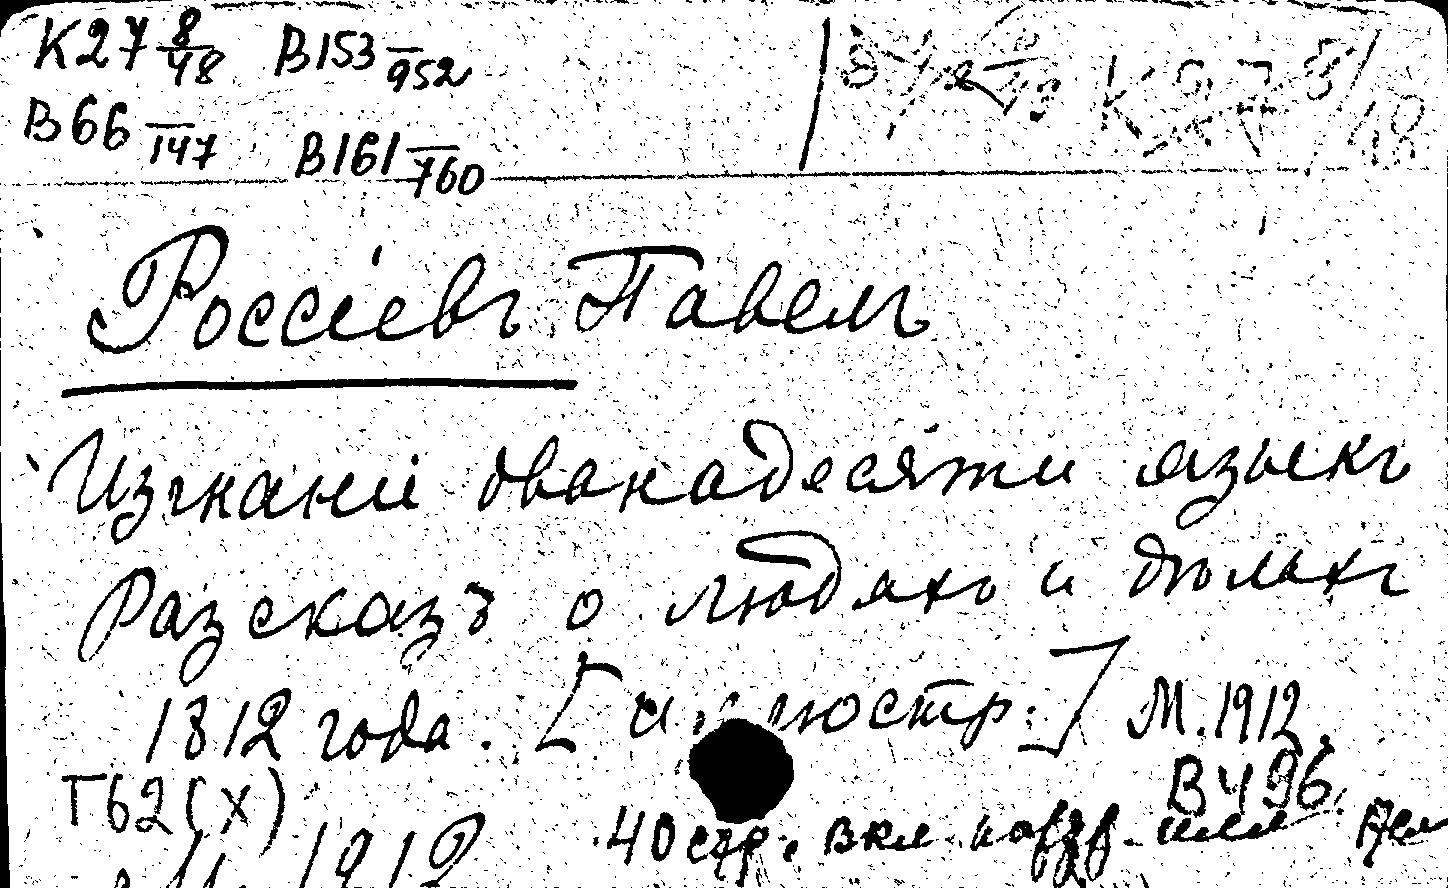 К27 8/48 В153 —/952
В66 —/147 В161 —/760
К27 8/48
Россіевъ Павелъ
Изгнаніи дванадесяти языкъ
Разсказъ о людяхъ и дѣлахъ
1812 года. [иллюстр:] М. 1912.
Т62(х) В496.
40 стр. вкл.
М. 1912